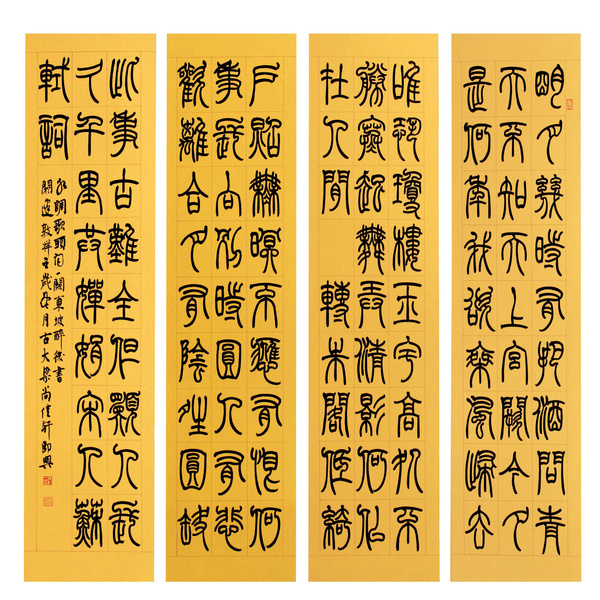 明月幾時有把酒問青
天不知天上宮闕今夕
是何年我欲乘風歸去
唯恐瓊樓玉宇高処不
勝寒起舞弄清影何似
在人間 轉朱閣低綺
戶照無眠不應有恨何
事長向別時圓人有悲
歡離合月有陰晴圓缺
此事古難全但願人長
久千里共嬋娟宋人蘇
軾詞
水調歌頭詞一闋東坡醉後書
閼逢敦牂之歲月古大梁尚佳軒即興